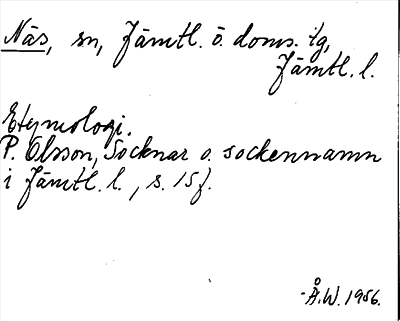 Näs, sn, Jämtl. ö. doms. tg,
Jämtl. l.
Etymologi.
P. Olsson, Socknar o. sockennamn
i Jämtl. l., s. 15f.
Å.W. 1956.